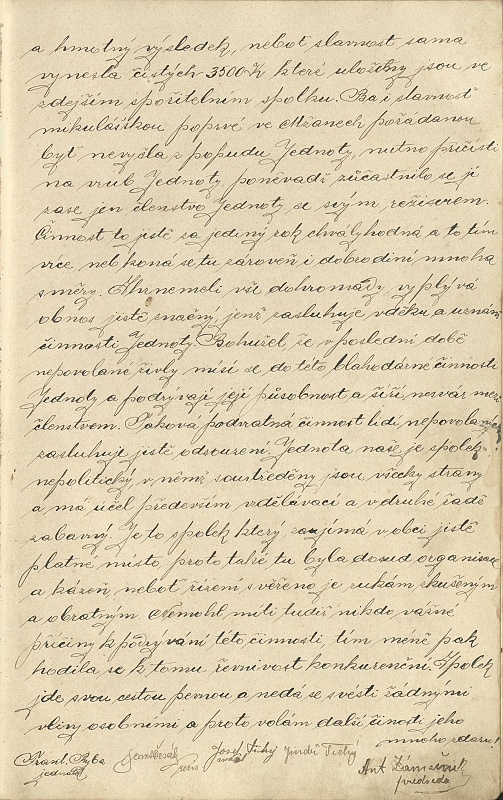 a hmotný výsledek, neboť slavnost sama
vynesla čistých 3500 K které uloženy jsou ve
zdejším spořitelním spolku. Ba i slavnost
mikulášskou poprvé ve Mžanech pořádanou
byť nevyšla z popudu Jednoty, nutno přičísti
na vrub Jednoty, poněvadž zúčastnilo se jí
zase jen členstvo Jednoty se svým režiserem.
Činnost to jistě za jediný rok chvalyhodná a to tím
více, neb koná se tu zároveň i dobrodiní mnoha
směry. Shrneme-li vše dohromady vyplývá
obnos jistě značný, jenž zasluhuje vděku a uznání
činnosti Jednoty. Bohužel, že v poslední době
nepovolané živly mísí se do této blahodárné činnosti
Jednoty a podrývají její působnost a šíří nesvár mezi
členstvem. Taková podvratná činnost lidí nepovolaných
zasluhuje jistě odsouzení. Jednota naše je spolek
nepolitický, v němž soustředěny jsou všecky strany
a má účel především vzdělávací a v druhé řadě
zábavný. Je to spolek který zaujímá v obci jistě
platné místo, proto také tu byla dosud organisace
a kázeň, neboť řízení svěřeno je rukám zkušeným
a obratným. Nemohl míti tudíž nikdo vážné
příčiny k podrývání této činnosti, tím méně pak
hodila se k tomu řevnivost konkurenční. Spolek
jde svou cestou pevnou a nedá se svésti žádnými
vlivy osobními a proto volám další činosti jeho
mnoho zdaru!
Frant. Ryba Josef Tichý Jindř Tichý
jednatel
Ant.
předseda